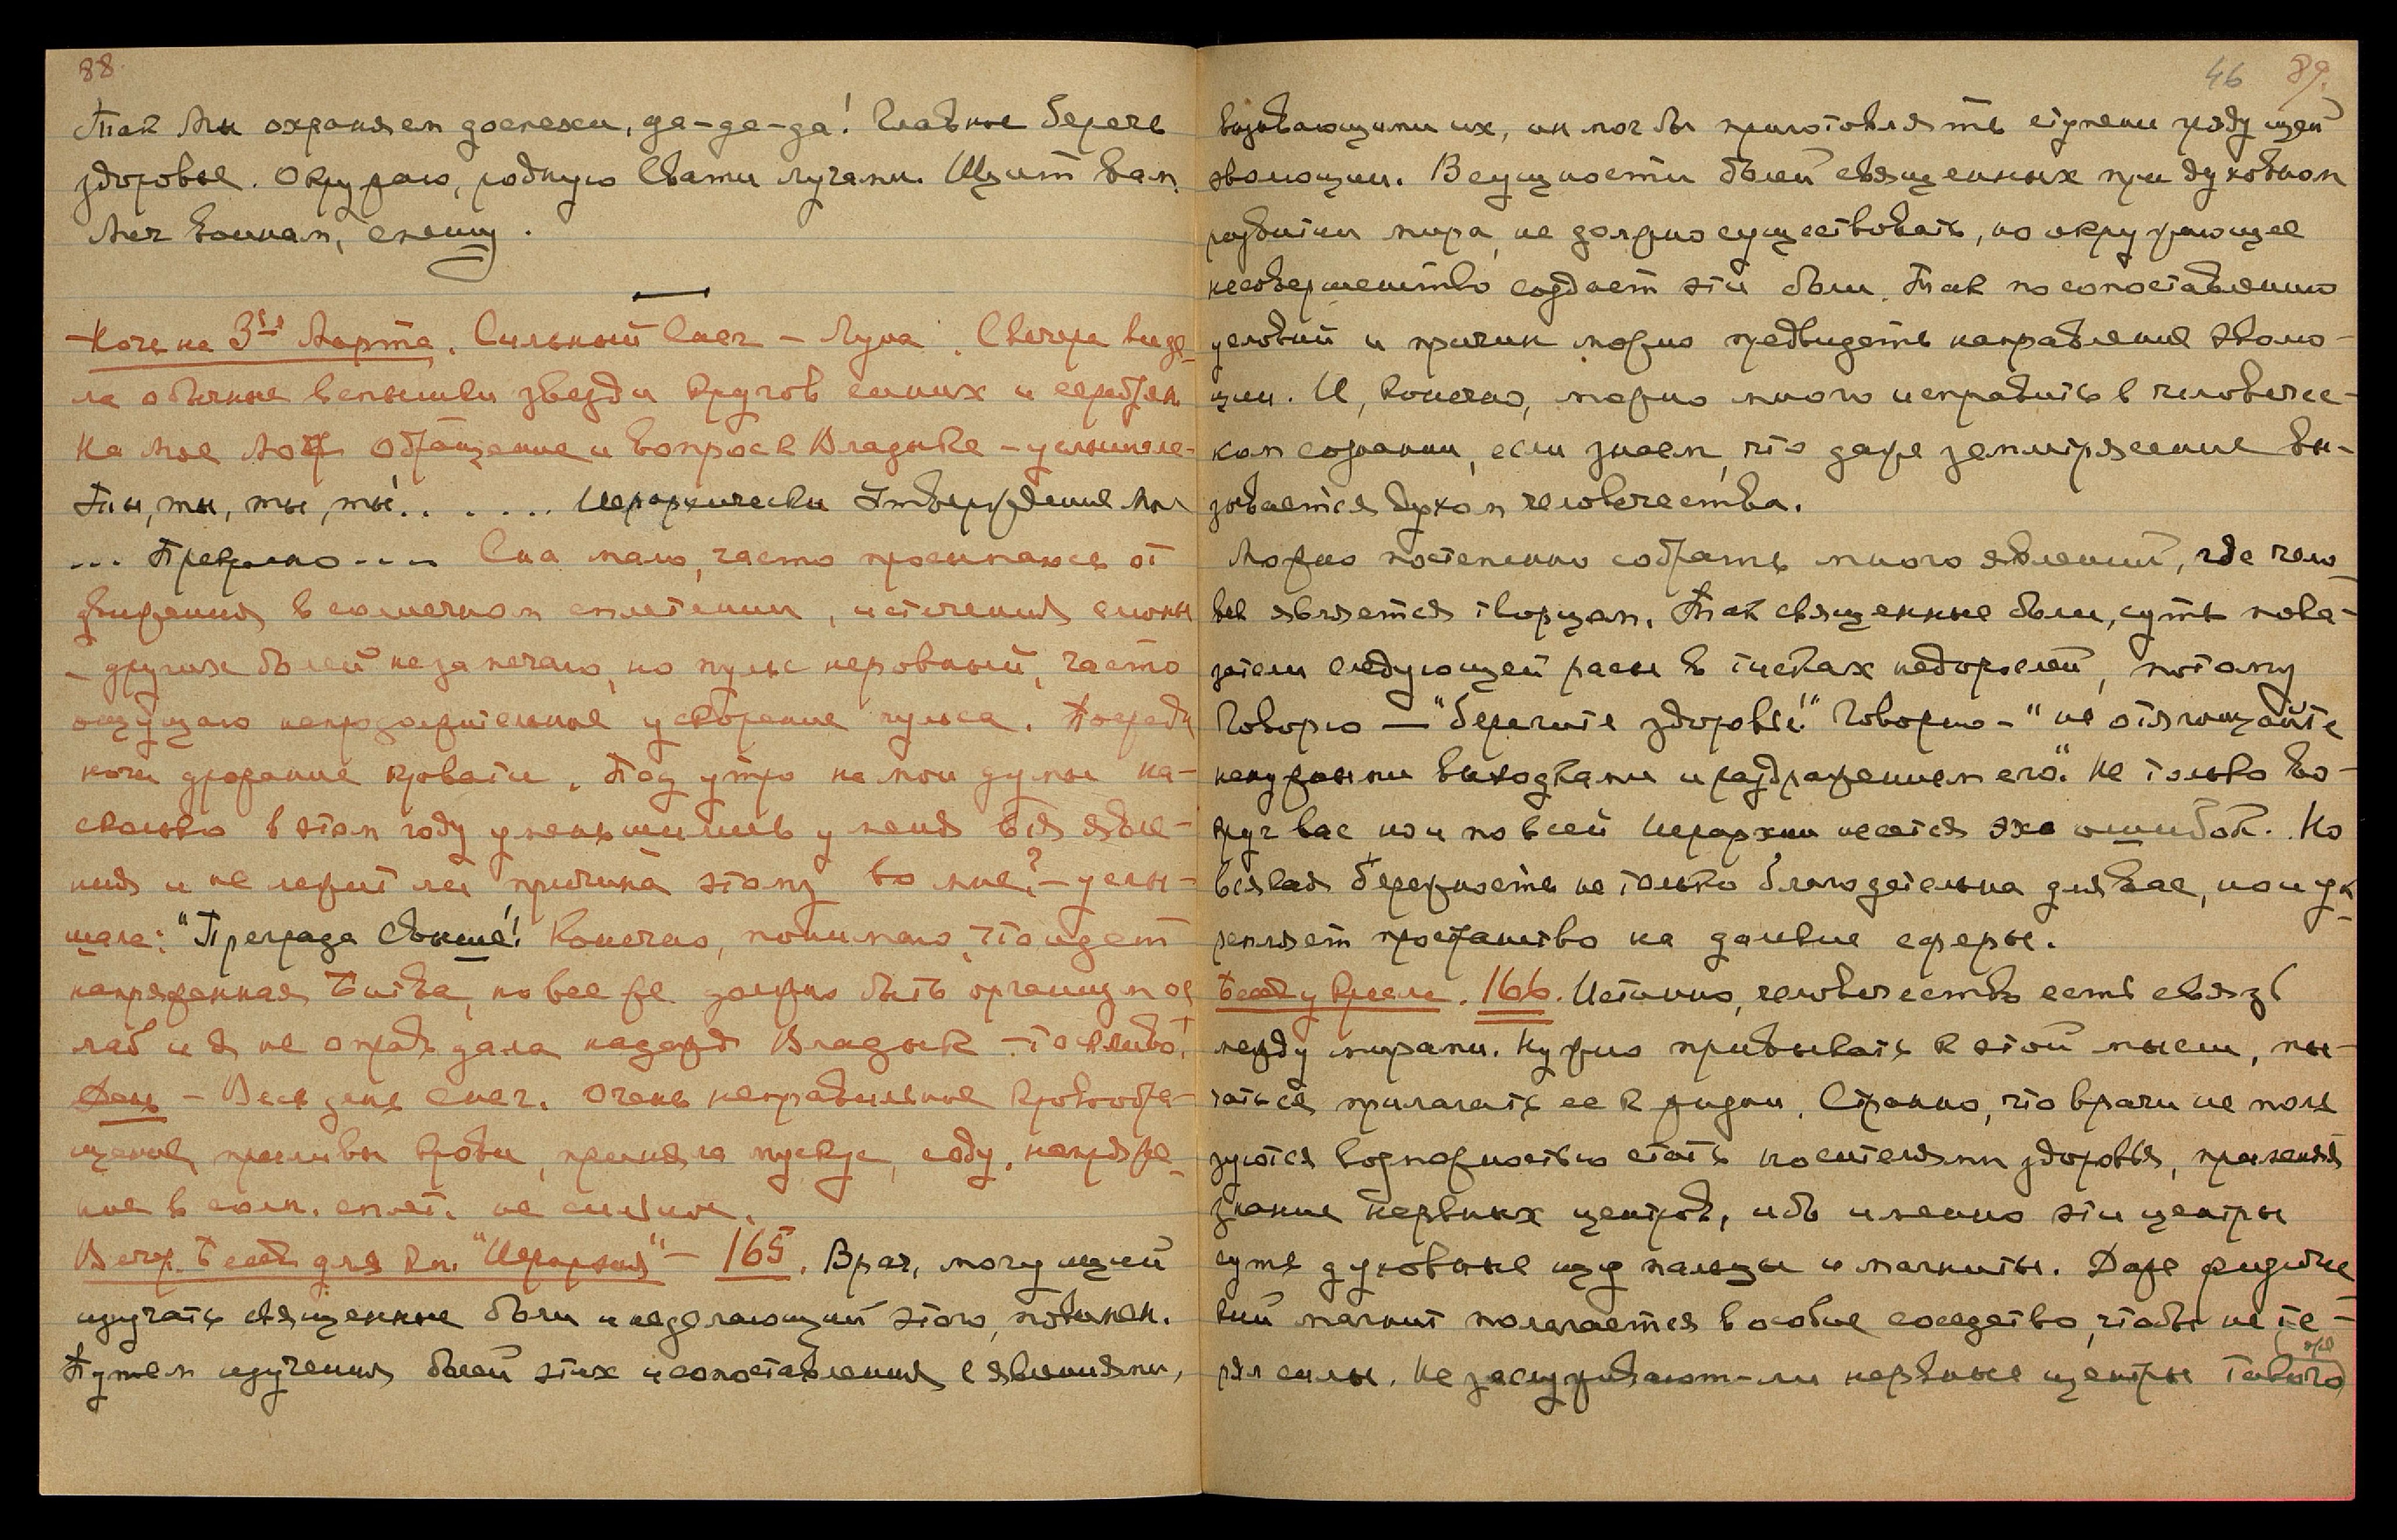 88
Так Мы охраняем доспехи, да-да-да! Главное беречь
здоровье. Окружаю, родную Свати лучами. Щит вам.
Меч воинам, спешу.
Ночь на 3ье Марта. Сильный Снег – Луна. С вечера виде-
ла обычные вспышки звезд и кругов синих и серебрян.
На мое обращение и вопрос к Владыке – услышала-
Ты, ты, ты, ты!...... Иерархически Утверждение Мы
... Прекрасно.... Сна мало, часто просыпаюсь от
жжения в солнечном сплетении, истечения слюны
- других болей не замечаю, но пульс неровный, часто
ощущаю непродолжительное ускорение пульса. Посреди
ночи дрожание кровати. Под утро на мои думы на-
сколько в этом году уменьшились у меня все явле-
ния и не лежит ли причина этому во мне? – услы-
шала: "Преграда свыше"! Конечно, понимаю, что идет
напряженная Битва, но все же должно быть организм ос-
лаб и я не оправдала надежд Владык – тоскливо!
День – Весь день снег. Очень неправильное кровообра-
щение, приливы крови, приняла мускус, соду, напряже-
ние в солн. сплет. не сильное.
Вечер. Бесед. для кн. "Иерархия" – 165. Врач, могущий
изучать священные боли и не делающий этого, повинен.
Путем изучения болей этих и сопоставления с явлениями,
46 89.
вызывающими их, он мог бы приготовлять ступени грядущей
эволюции. В сущности болей священных при духовном
развитии мира, не должно существовать, но окружающее
несовершенство создает эти боли. Так по сопоставлению
условий и причин можно предвидеть направление эволю-
ции. И, конечно, можно много исправить в человечес-
ком сознании, если знаем, что даже землетрясение вы-
зывается духом человечества.
Можно постепенно собрать много явлений, где чело-
век является творцом. Так священные боли, суть пока-
затели следующей расы в тисках недорослей, потому
Говорю — "берегите здоровье!" Говорю – "не отягощайте
ненужными выходками и раздражением его." Не только во-
круг вас, но и по всей Иерархии несется эхо ошибок. Но
всякая бережность не только благодетельна для вас, но и ук-
репляет пространство на далекие сферы.
Бесед у Кресла. 166. Истинно, человечество есть связь
между мирами. Нужно привыкать к этой мысли, пы-
таться прилагать ее к жизни. Странно, что врачи не поль
зуются возможностью стать носителями здоровья, применяя
знание нервных центров, ибо именно эти центры
суть духовные щупальцы и магниты. Даже физичес
кий магнит полагается в особое соседство, чтобы не те-
рял силы. Не заслуживают-ли нервные центры такого
же